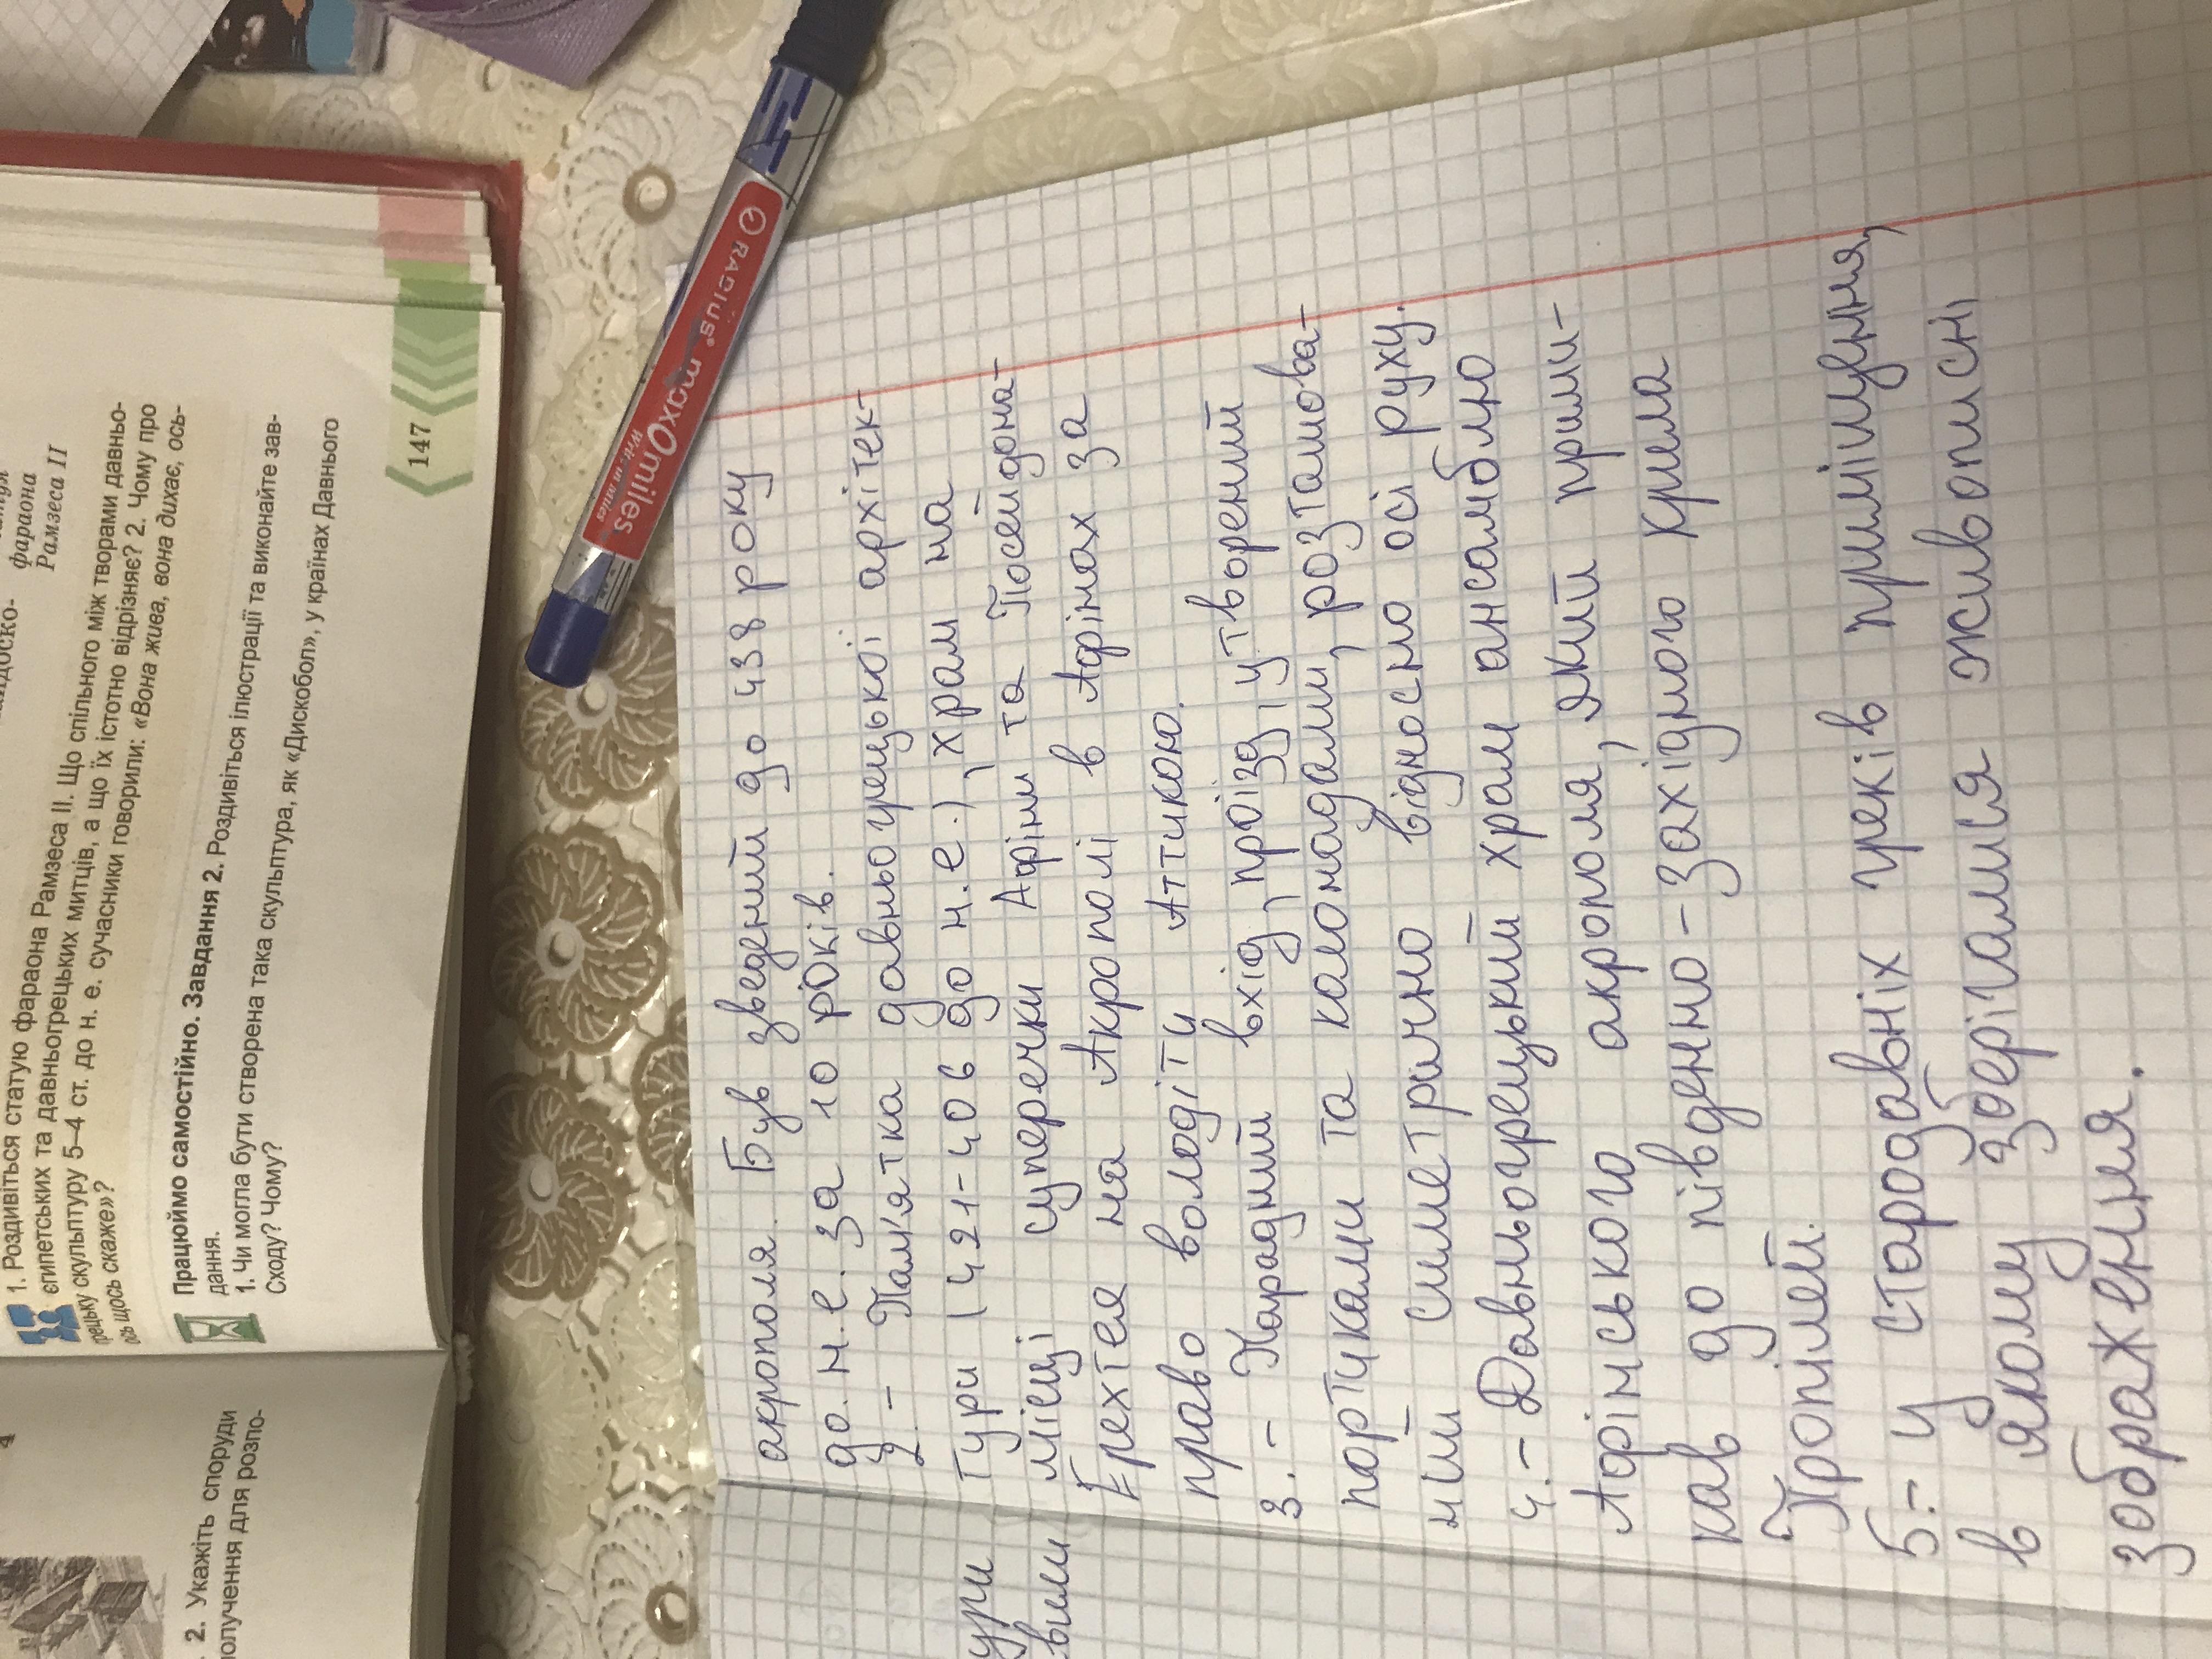 фараона
Рамзеса II
1. Роздивіться статую фараона Рамзеса II. Що спільного між творами давньо-
єгипетських та давньогрецьких митців, а що їх істотно відрізняє? 2. Чому про
рецьку скульптуру 5–4 ст. до н. е. сучасники говорили: «Вона жива, вона дихає, ось-
ось щось скаже»?
Працюймо самостійно. Завдання 2. Роздивіться ілюстрації та виконайте зав-
дання.
1. Чи могла бути створена така скульптура, як «Дискобол», у країнах Давнього
Сходу? Чому?
147
4
2. Укажіть споруди
олучення для розпо-
RADIUS maxOmiles
Write in miles
акрополя. Був зведений до 438 року
до. н. е. за 10 років.
2. - Памятка давньогрецької архітек-
тури (421-406 до н.е.), храм на
місці суперечки Афіни та Посейдона-
Ерехтея на Акрополі в Афінах за
право володіти Аттикою.
3. - Парадний вхід, проїзд, утворений
портиками та калонадами, розташова-
ний симетрично відносно осі руху.
4. - Давньогрецький храм ансамблю
Афінського акрополя, який прими-
кав до південно-західного крила
Пропілей.
5. - У стародавніх греків приміщення,
в якому зберігалися живописні
зображення.
ури
вими